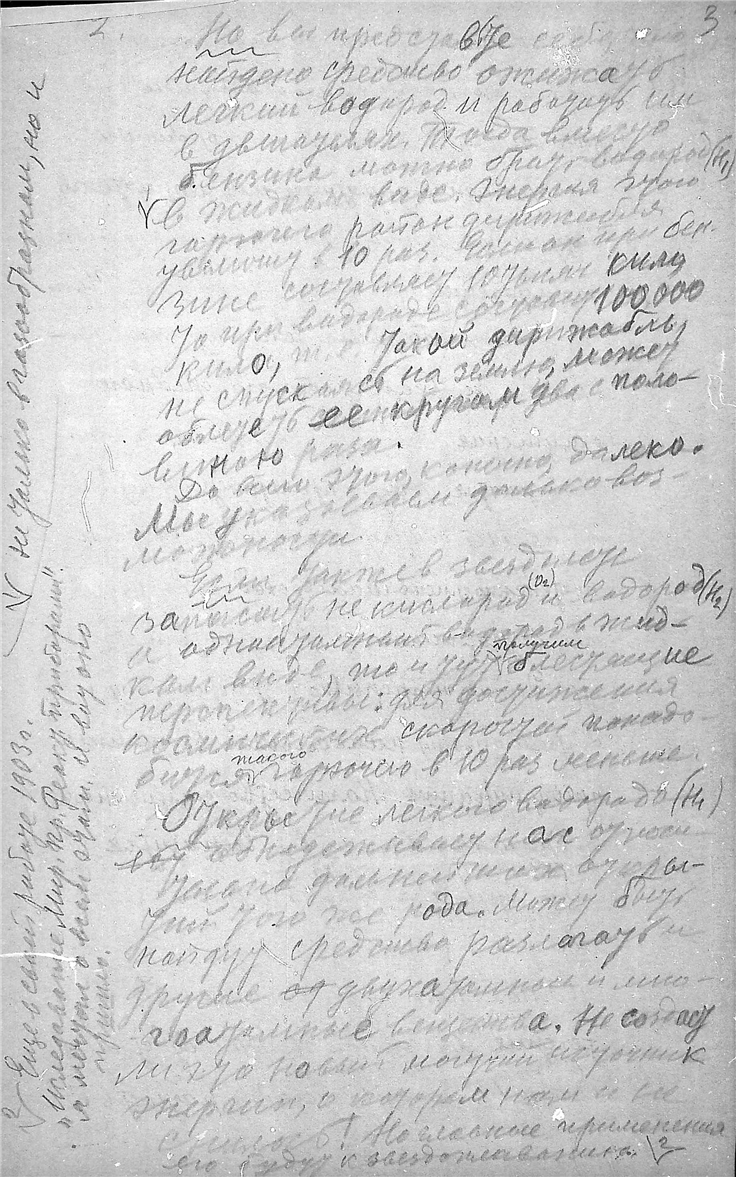 2. 3
Но вы представьте
найдено средство ожижать
легкий водород и работать им
в двигателях. Тогда вместо
бензина можно брать водород (H1)
в жидком виде. Энергия этого
горючего дирижабля
увеличит в 10 раз. Если он при бен-
зине составляет 10 тысяч кило,
то при водороде составит 100 000
кило, т. е. такой дирижабль,
не спускаясь на землю, может
облететь ее кругом два с поло-
виною раза.
До этого, конечно, далеко.
Мы указываем только воз-
можности.
Если также в звездолете
запасать не кислород (O2) и водород (H2)
а одноатомный водород в жид-
ком виде, то и тут получим блестящие
перспективы: для достижения
космических скоростей понадо-
бится такого горючего в 10 раз меньше.
Открытие легкого водорода (H1)
обнадеживает нас относи-
тельно дальнейших откры-
тий того же рода. Может быть
найдут средство разлагать и
другие двухатомные и мно-
гоатомные вещества. Не создаст
ли это новый могучий источник
энергии, о котором нам и не
снилось! Но главные применения
его будут к звездоплаванию.
не только в газообразном, но и
Еще в своей работе 1903 г.
"Исследование Мир. Пр. Реакт. приборами"
я мечтал о моем этом. И вот оно
пришло.